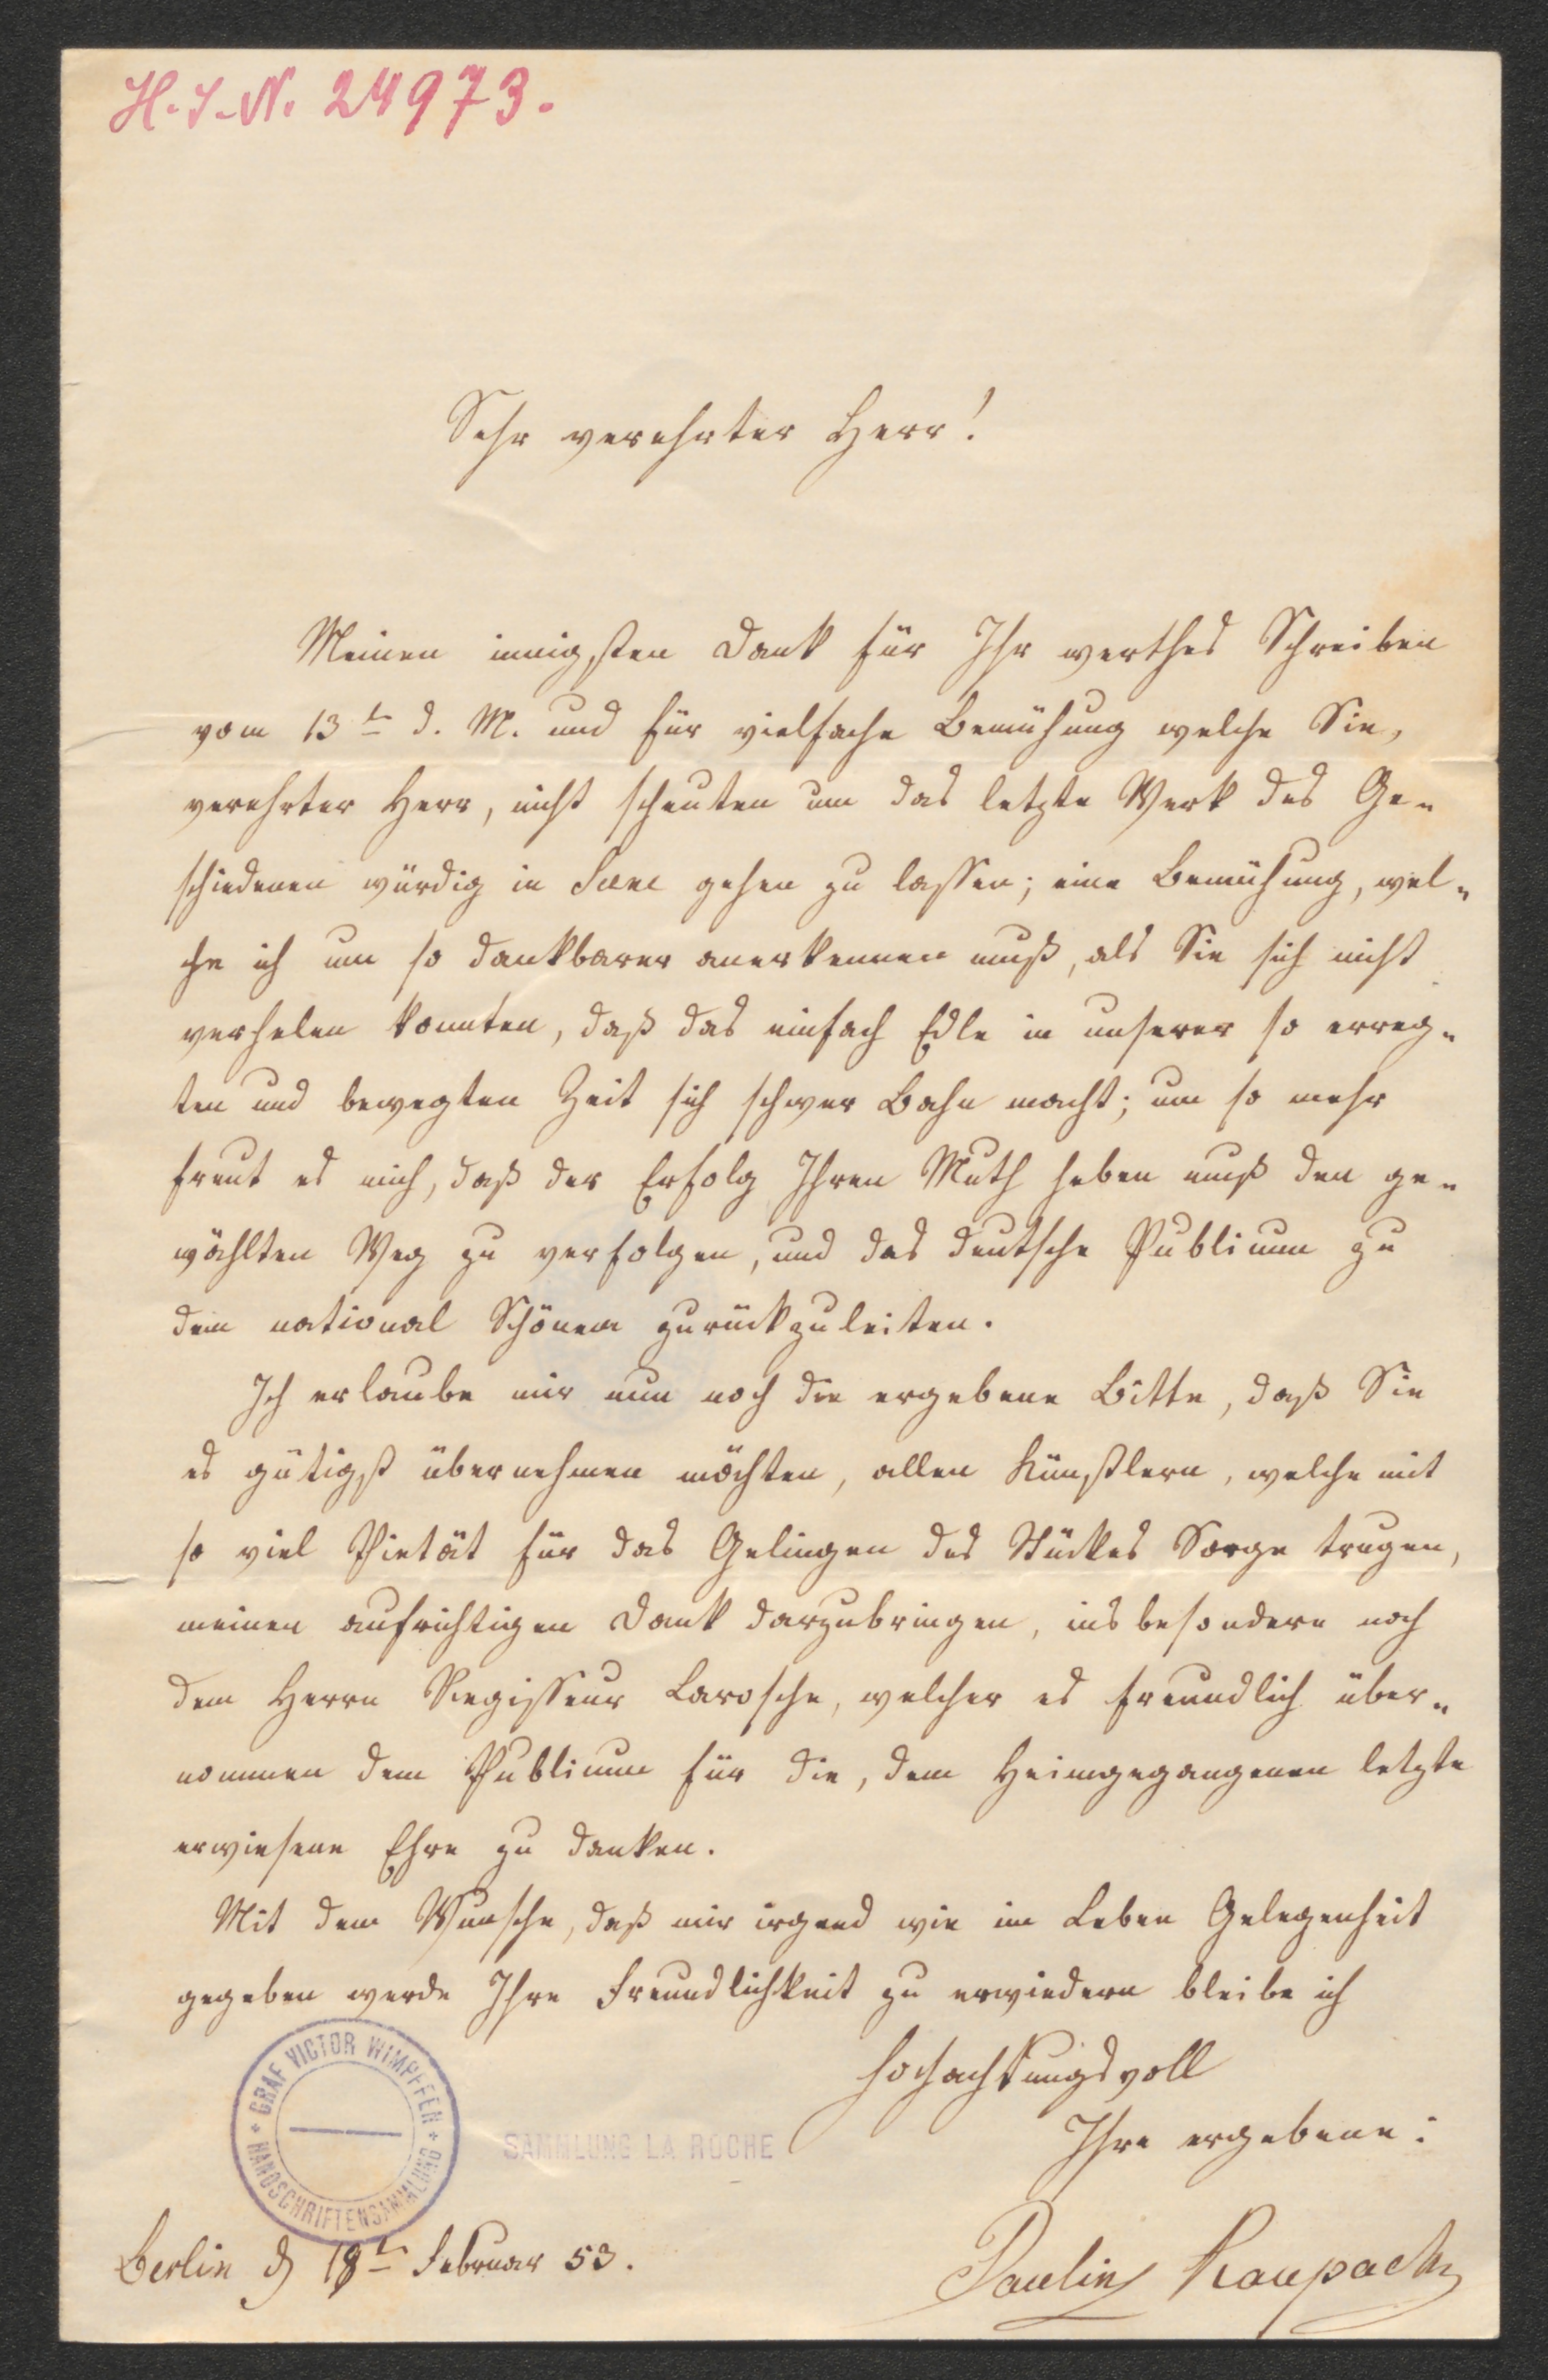 H. I. N. 24973.
Sehr verehrter Herr!
Meinen innigsten Dank für Ihr werthes Schreiben
vom 13t d. M. und für vielfache Bemühung welche Sie,
verehrter Herr, nicht scheuten um das letzte Werk des Ge=
schiedenen würdig in Scene gehen zu lassen; eine Bemühung, wel=
che ich um so dankbarer anerkennen muß, als Sie sich nicht
verhelen konnten, daß das einfach Edle in unserer so erreg=
ten und bewegten Zeit sich schwer Bahn macht; um so mehr
freut es mich, daß der Erfolg Ihren Muth heben muß den ge=
wählten Weg zu verfolgen, und das deutsche Publicum zu
dem national Schönen zurückzuleiten.
Ich erlaube mir nun noch die ergebene Bitte, daß Sie
es gütigst übernehmen möchten, allen Künstlern, welche mit
so viel Pietät für das Gelingen des Stückes Sorge trugen,
meinen aufrichtigen Dank darzubringen, insbesondere noch
dem Herrn Regisseur Larosche, welcher es freundlich über=
nommen dem Publicum für die, dem Heimgegangenen letzte
erwiesene Ehre zu danken.
Mit dem Wunsche, daß mir irgend wie im Leben Gelegenheit
gegeben werde Ihre Freundlichkeit zu erwiedern bleibe ich
hochachtungsvoll
Ihre ergebene:
GRAF VICTOR WIMPFFEN
HANDSCHRIFTENSAMMLUNG
SAMMLUNG LA ROCHE
Berlin d 18t Februar 53.
Pauline Raupach